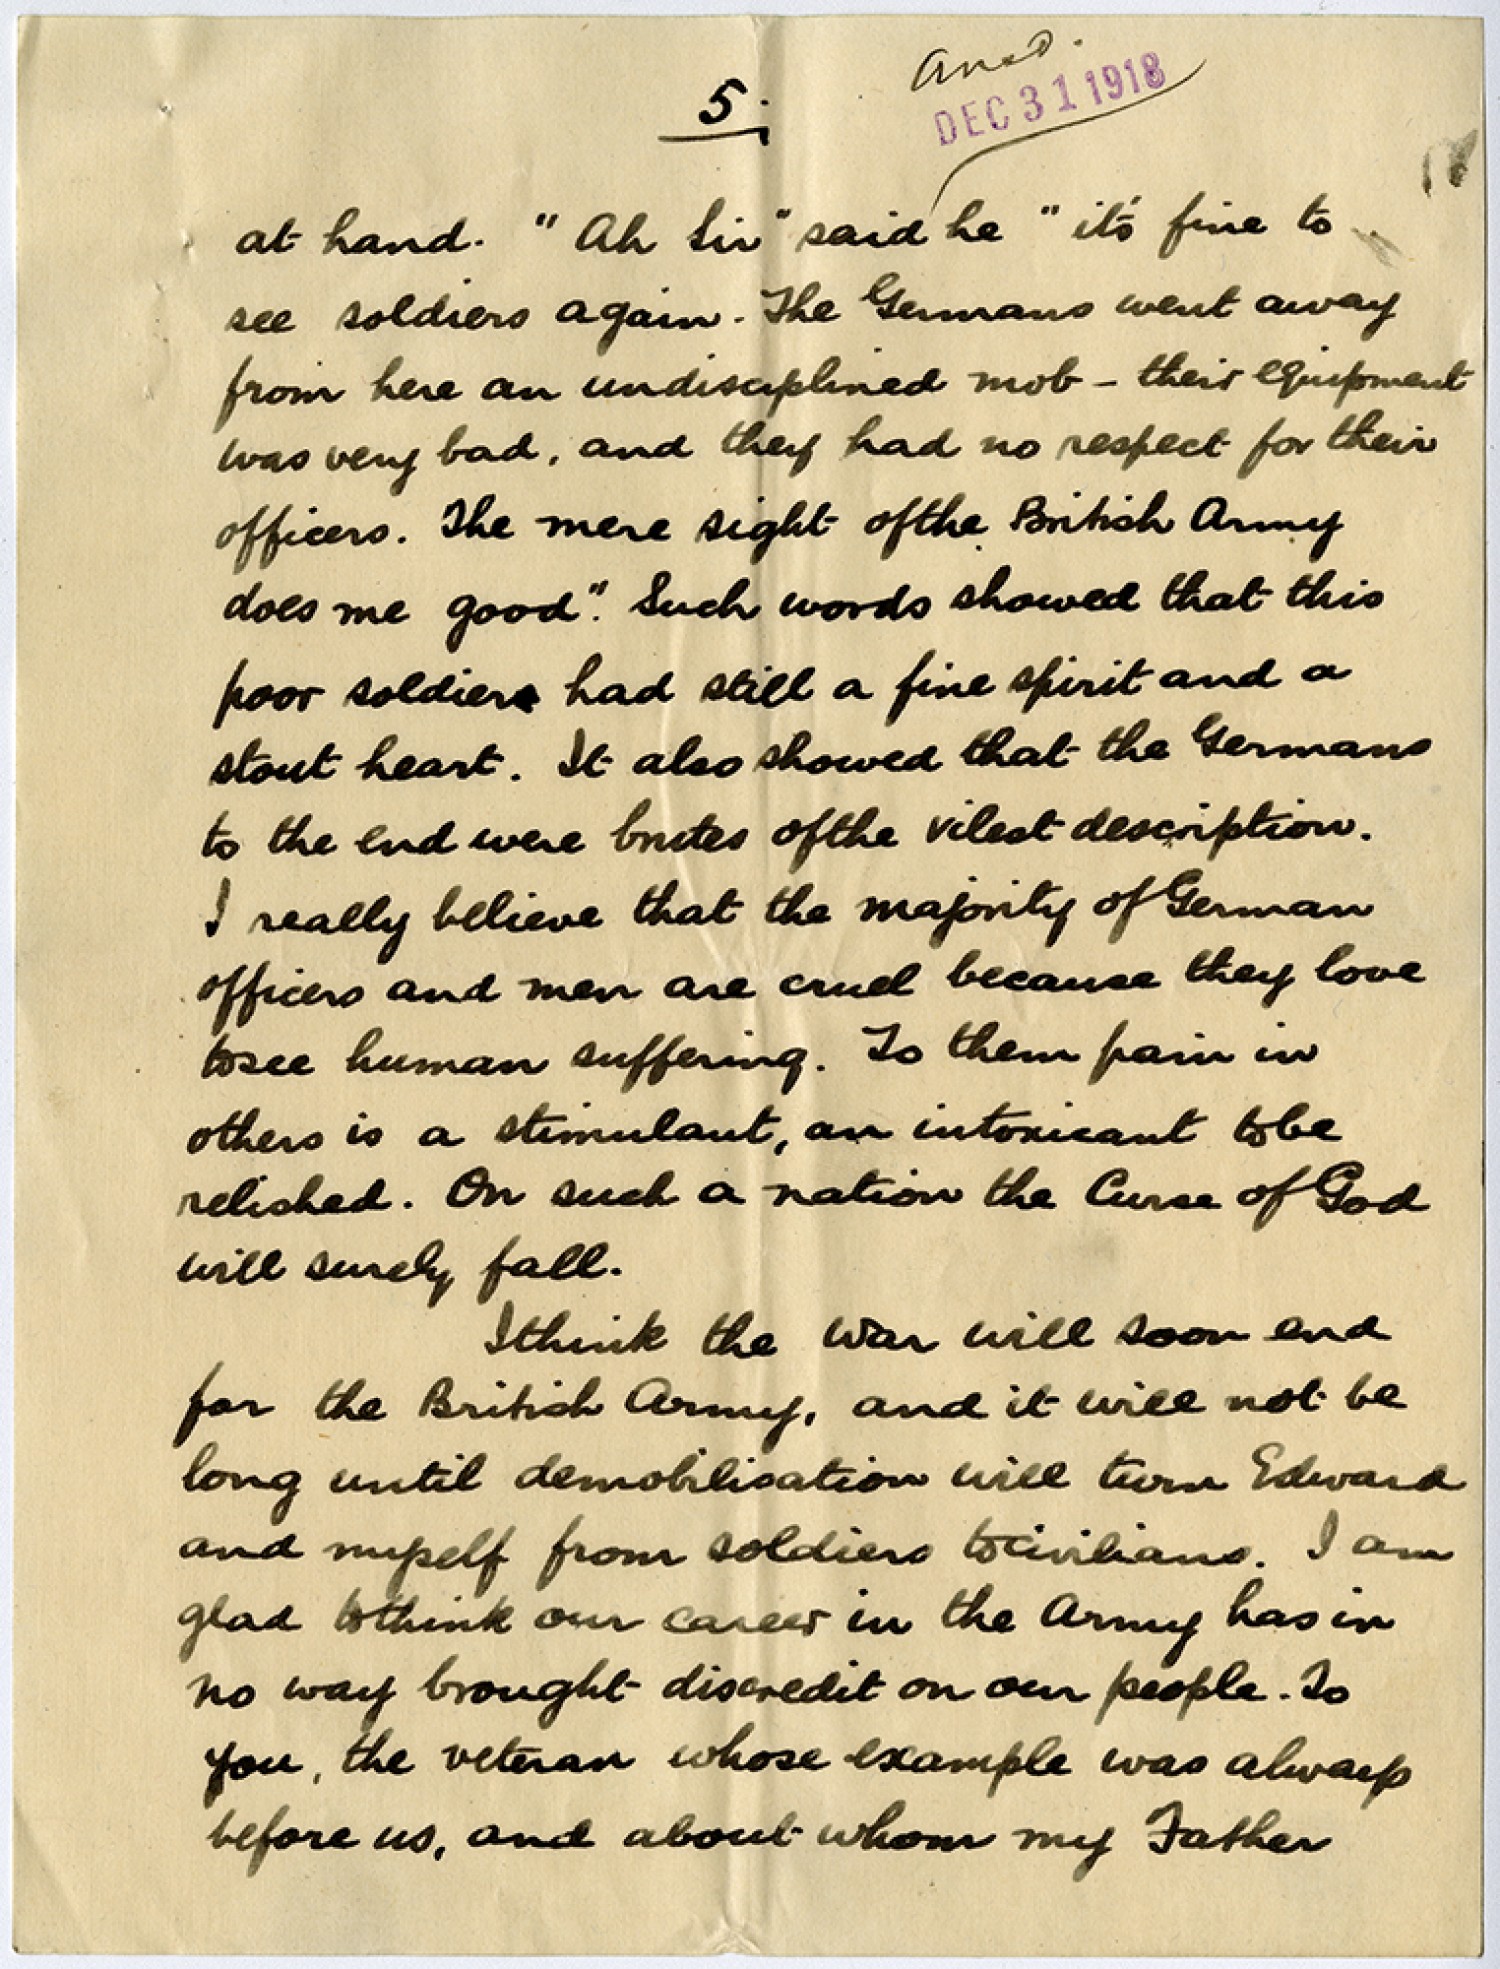 5.
Ansd.
DEC 31 1918
at hand. "Ah Sir" said he "it's fine to
see soldiers again. The Germans went away
from here an undisciplined mob - their equipment
was very bad, and they had no respect for their
officers. The mere sight of the British Army
does me good". Such words showed that this
poor soldier had still a fine spirit and a
stout heart. It also showed that the Germans
to the end were brutes of the vilest description.
I really believe that the majority of German
officers and men are cruel because they love
to see human suffering. To them pain in
others is a stimulant, an intoxicant to be
relished. On such a nation the Curse of God
will surely fall.
I think the war will soon end
for the British Army, and it will not be
long until demobilisation will turn Edward
and myself from soldiers to civilians. I am
glad to think our career in the Army has in
no way brought discredit on our people. To
you, the veteran whose example was always
before us, and about whom my Father